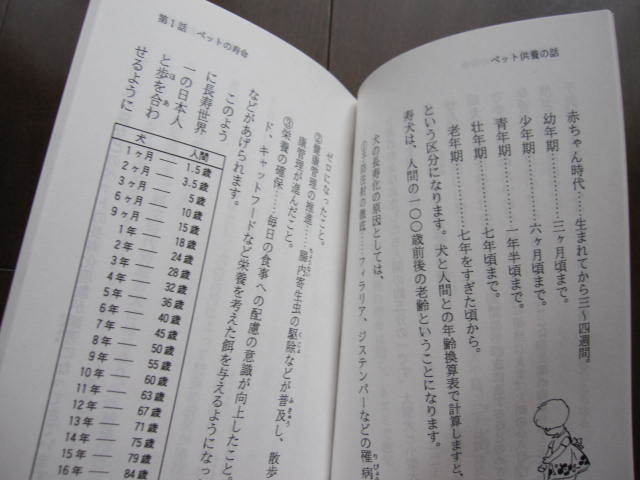 ペット供養の話
赤ちゃん時代……生まれてから三〜四週間。
幼年期……三ヶ月頃まで。
少年期……六ヶ月頃まで。
青年期……一年半頃まで。
壮年期……七年頃まで。
老年期……七年をすぎた頃から。
という区分になります。犬と人間との年齢換算表で計算しますと、
寿犬は、人間の一〇〇歳前後の老齢ということになります。
犬の長寿化の原因としては、
①予防注射の徹底……フィラリア、ジステンパーなどの罹病
第1話 ペットの寿命
ゼロになったこと。
②健康管理の推進……腸内寄生虫の駆除などが普及し、散歩
康管理が進んだこと。
③栄養の確保……毎日の食事への配慮の意識が向上したこと。
ド、キャットフードなど栄養を考えた餌を与えるようになっ
などがあげられます。
このよう
に長寿世界
一の日本人
と歩を合わ
せるように
犬 人間
1ヶ月 ── 1.5歳
2ヶ月 ── 3.5歳
3ヶ月 ── 5歳
6ヶ月 ── 10歳
9ヶ月 ── 15歳
1年 ── 18歳
2年 ── 24歳
3年 ── 28歳
4年 ── 32歳
5年 ── 36歳
6年 ── 40歳
7年 ── 45歳
8年 ── 50歳
9年 ── 55歳
10年 ── 60歳
11年 ── 63歳
12年 ── 67歳
13年 ── 71歳
14年 ── 75歳
15年 ── 79歳
16年 ── 84歳